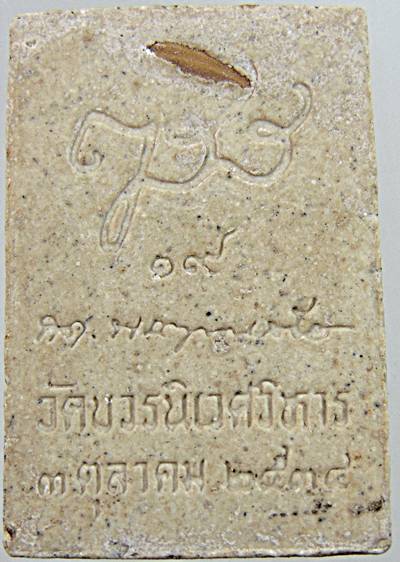 ญสส
๑๙
วัดบวรนิเวศวิหาร
๓ ตุลาคม ๒๕๓๔